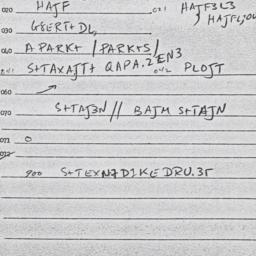 020 HAJF 021 HAJF3L3
030 G8ERT+DL,
040 APARK+ /PARK+S/
041 S+TAXAJT+ QAPA.2EN3 042 PLOJT
060
070 S+TAJ3N// BAJM S+TAJN
071 0
072
900 S+TEXN7D1KEDRU.35